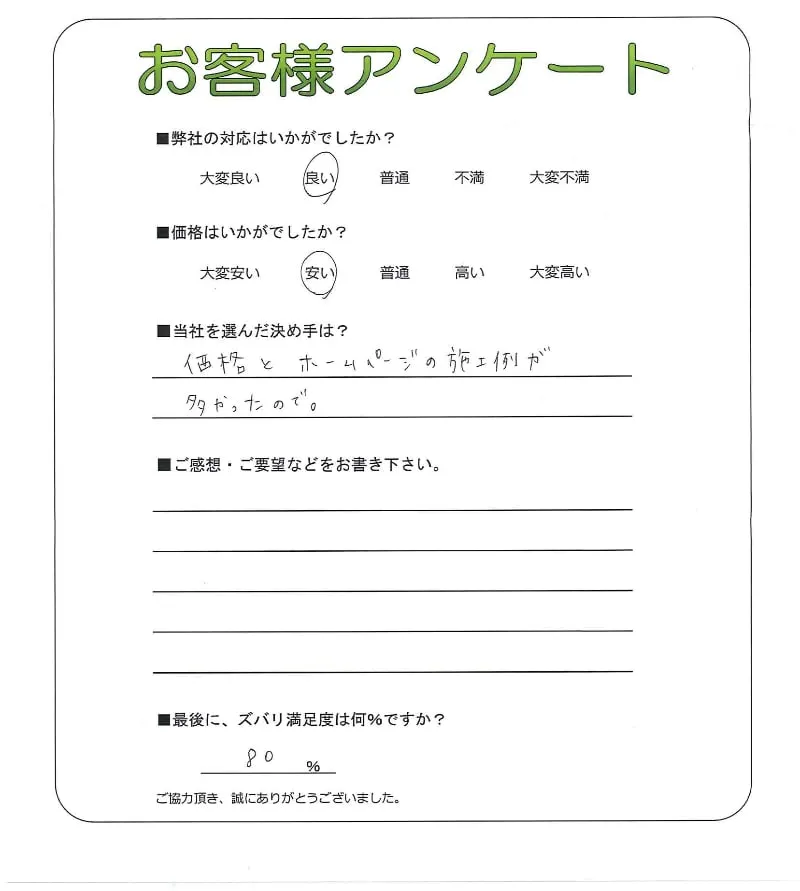 お客様アンケート
■弊社の対応はいかがでしたか？
大変良い 良い 普通 不満 大変不満
■価格はいかがでしたか？
大変安い 安い 普通 高い 大変高い
■当社を選んだ決め手は？
価格と ホームページの施工例が
多かったので。
■ご感想・ご要望などをお書き下さい。
■最後に、ズバリ満足度は何%ですか？
80 %
ご協力頂き、誠にありがとうございました。